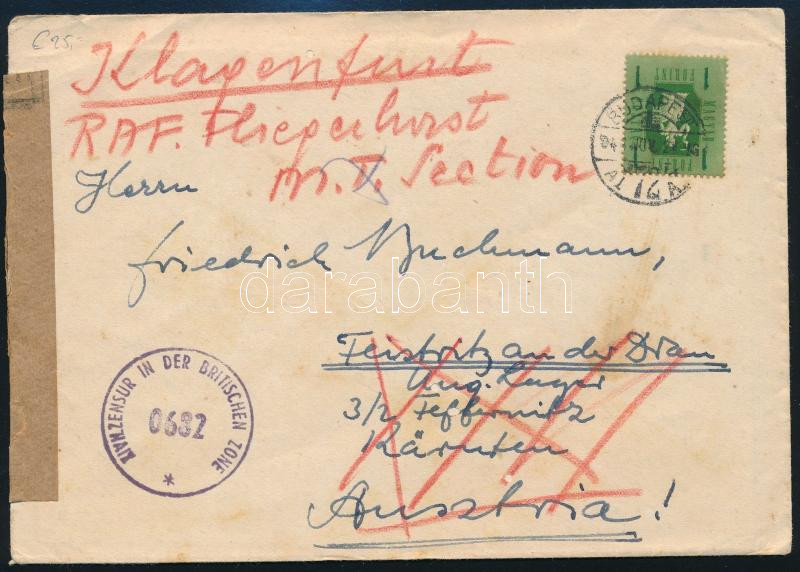 € 25,-
Klagenfurt
RAF. Fliegerhorst
M.T. Section
Herrn
Friedrich Buchmann,
Feistritz an der Drau
Ung. Lager
3/2 Feffernitz
Kärnten
Ausztria!
1 FORINT 1
BUDAPEST
72
ZIVILZENSUR IN DER BRITISCHEN ZONE
0682
*
darabanth